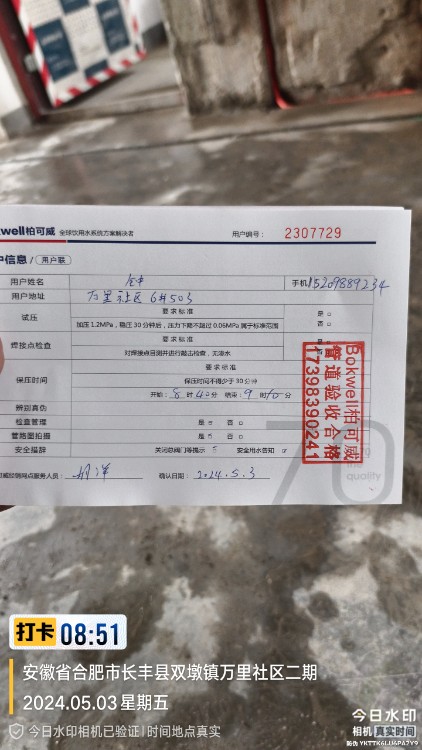 kwell柏可威 全球饮用水系统方案解决者 用户编号: 2307729
户信息/ 用户联
用户姓名 手机 15209889234
用户地址 万里社区 6#503
试压 要求标准 是 否
加压1.2MPa,稳压30分钟后,压力下降不超过0.06MPa属于标准范围
焊接点检查 要求标准 是 否
对焊接点目测并进行敲击检查,无渗水
保压时间 要求标准
保压时间不得少于30分钟
开始: 8时40分 结束: 9时10分
辨别真伪
检查管理 是 否
管路图拍摄 是 否
安全描辞 关闭总阀门等提示 安全用水告知
可威经销网点服务人员: 确认日期: 2024.5.3
Bokwell柏可威
管道验收合格
17398390241
70
quality
打卡 08:51
安徽省合肥市长丰县双墩镇万里社区二期
2024.05.03 星期五
今日水印相机已验证|时间地点真实
今日水印
相机 真实时间
防伪 YKTTK6LU6PA7Y9